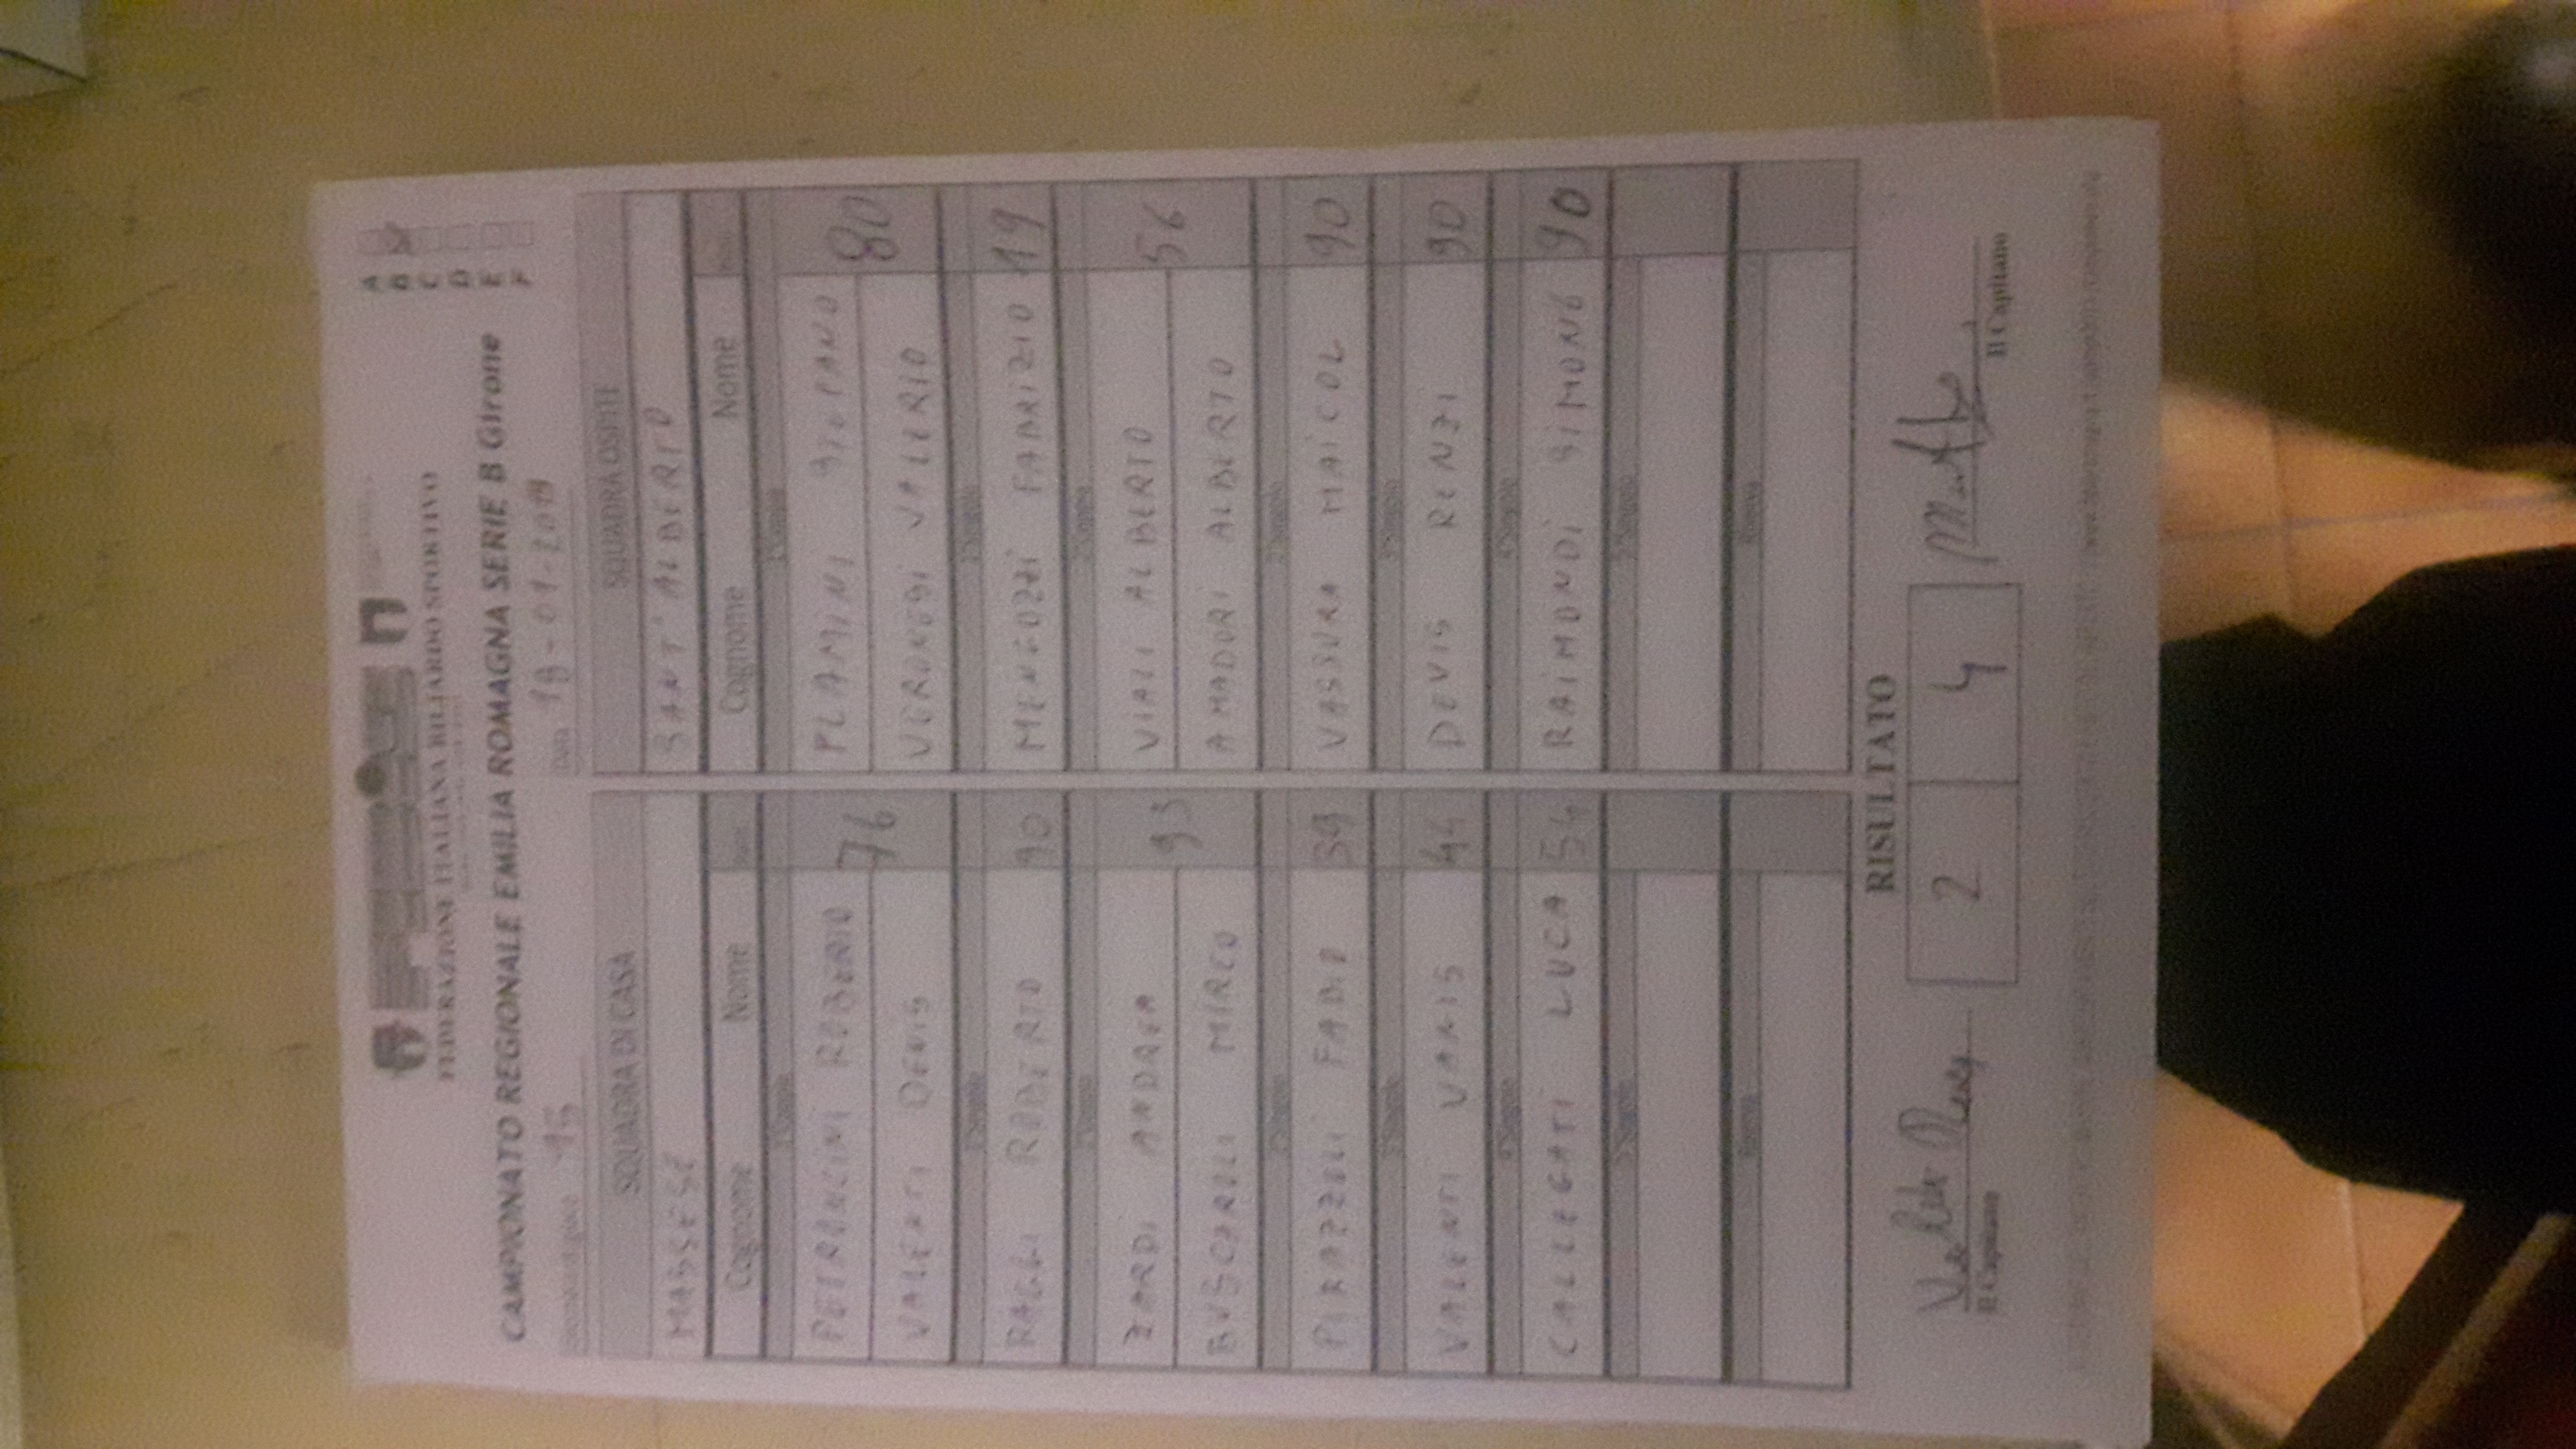 FEDERAZIONE ITALIANA BILIARDO SPORTIVO
CAMPIONATO REGIONALE EMILIA ROMAGNA SERIE B Girone
A
B
C
D
E
F
15
Data 18-01-2019
SQUADRA DI CASA
SQUADRA OSPITE
MASSESE
SANT'ALBERTO
Cognome Nome
Cognome Nome
PETRONCINI ROBERTO 76
PLAMINI STEFANO 80
VALENTI DENIS
VERONESI VALERIO
RAGGI ROBERTO 90
MENGOZZI FABRIZIO 49
ZARDI ANDREA 93
VIALI ALBERTO 56
BUSCAROLI MIRCO
AMADORI ALBERTO
PIRAZZOLI FABIO 39
VASSURA MAICOL 90
VALENTI VANIS 44
DEVIS RENZI 90
CALLEGATI LUCA 54
RAIMONDI SIMONE 90
RISULTATO
2 4
Il Capitano
Il Capitano